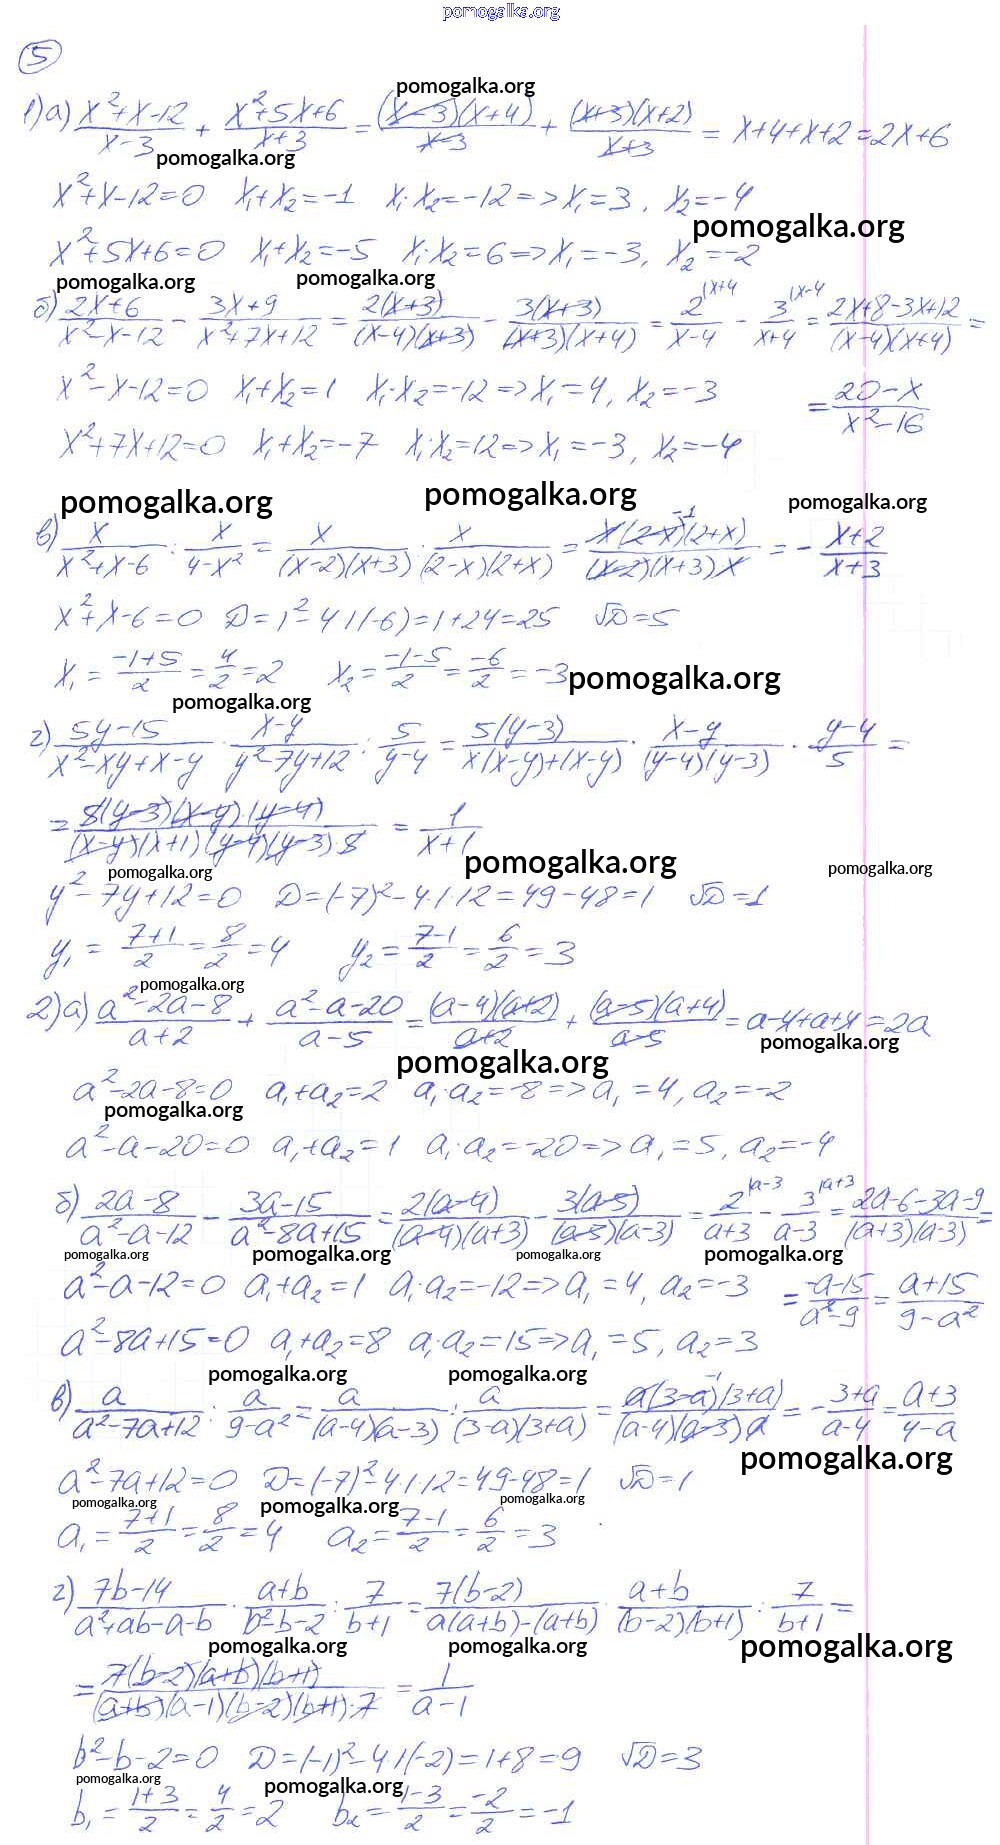 pomogalka.org
5
pomogalka.org
1) а) (x²+x-12)/(x-3) + (x²+5x+6)/(x+3) = (x-3)(x+4)/(x-3) + (x+3)(x+2)/(x+3) = x+4+x+2=2x+6
pomogalka.org
x²+x-12=0 x₁+x₂=-1 x₁·x₂=-12=>x₁=3, x₂=-4
pomogalka.org
x²+5x+6=0 x₁+x₂=-5 x₁·x₂=6=>x₁=-3, x₂=-2
pomogalka.org pomogalka.org
б) (2x+6)/(x²-x-12) - (3x+9)/(x²+7x+12) = 2(x+3)/((x-4)(x+3)) - 3(x+3)/((x+3)(x+4)) = 2|x+4/(x-4) - 3|x-4/(x+4) = (2x+8-3x+12)/((x-4)(x+4)) =
x²-x-12=0 x₁+x₂=1 x₁·x₂=-12=>x₁=4, x₂=-3 = (20-x)/(x²-16)
x²+7x+12=0 x₁+x₂=-7 x₁·x₂=12=>x₁=-3, x₂=-4
pomogalka.org pomogalka.org pomogalka.org
в) x/(x²+x-6) : x/(4-x²) = x/((x-2)(x+3)) : x/((2-x)(2+x)) = x(2-x)⁻¹(2+x)/((x-2)(x+3)x) = -(x+2)/(x+3)
x²+x-6=0 D=1²-4·1(-6)=1+24=25 √D=5
x₁=(-1+5)/2=4/2=2 x₂=(-1-5)/2=-6/2=-3 pomogalka.org
pomogalka.org
г) (5y-15)/(x²-xy+x-y) · (x-y)/(y²-7y+12) : 5/(y-4) = 5(y-3)/(x(x-y)+(x-y)) · (x-y)/((y-4)(y-3)) · (y-4)/5 =
= 5(y-3)(x-y)·(y-4)/((x-y)(x+1)(y-4)(y-3)·5) = 1/(x+1)
pomogalka.org pomogalka.org pomogalka.org
y²-7y+12=0 D=(-7)²-4·1·12=49-48=1 √D=1
y₁=(7+1)/2=8/2=4 y₂=(7-1)/2=6/2=3
pomogalka.org
2) а) (a²-2a-8)/(a+2) + (a²-a-20)/(a-5) = (a-4)(a+2)/(a+2) + (a-5)(a+4)/(a-5) = a-4+a+4=2a
pomogalka.org pomogalka.org
a²-2a-8=0 a₁+a₂=2 a₁·a₂=-8=>a₁=4, a₂=-2
pomogalka.org
a²-a-20=0 a₁+a₂=1 a₁·a₂=-20=>a₁=5, a₂=-4
б) (2a-8)/(a²-a-12) - (3a-15)/(a²-8a+15) = 2(a-4)/((a-4)(a+3)) - 3(a-5)/((a-5)(a-3)) = 2|a-3/(a+3) - 3|a+3/(a-3) = (2a-6-3a-9)/((a+3)(a-3)) =
pomogalka.org pomogalka.org pomogalka.org pomogalka.org
a²-a-12=0 a₁+a₂=1 a₁·a₂=-12=>a₁=4, a₂=-3 = (-a-15)/(a²-9) = (a+15)/(9-a²)
a²-8a+15=0 a₁+a₂=8 a₁·a₂=15=>a₁=5, a₂=3
pomogalka.org pomogalka.org
в) a/(a²-7a+12) : a/(9-a²) = a/((a-4)(a-3)) : a/((3-a)(3+a)) = a(3-a)⁻¹(3+a)/((a-4)(a-3)a) = -(3+a)/(a-4) = (a+3)/(4-a)
pomogalka.org
a²-7a+12=0 D=(-7)²-4·1·12=49-48=1 √D=1
pomogalka.org pomogalka.org pomogalka.org
a₁=(7+1)/2=8/2=4 a₂=(7-1)/2=6/2=3
г) (7b-14)/(a²+ab-a-b) · (a+b)/(b²-b-2) : 7/(b+1) = 7(b-2)/(a(a+b)-(a+b)) · (a+b)/((b-2)(b+1)) : 7/(b+1) =
pomogalka.org pomogalka.org pomogalka.org
= 7(b-2)(a+b)(b+1)/((a+b)(a-1)(b-2)(b+1)·7) = 1/(a-1)
b²-b-2=0 D=(-1)²-4·1(-2)=1+8=9 √D=3
pomogalka.org pomogalka.org
b₁=(1+3)/2=4/2=2 b₂=(1-3)/2=-2/2=-1